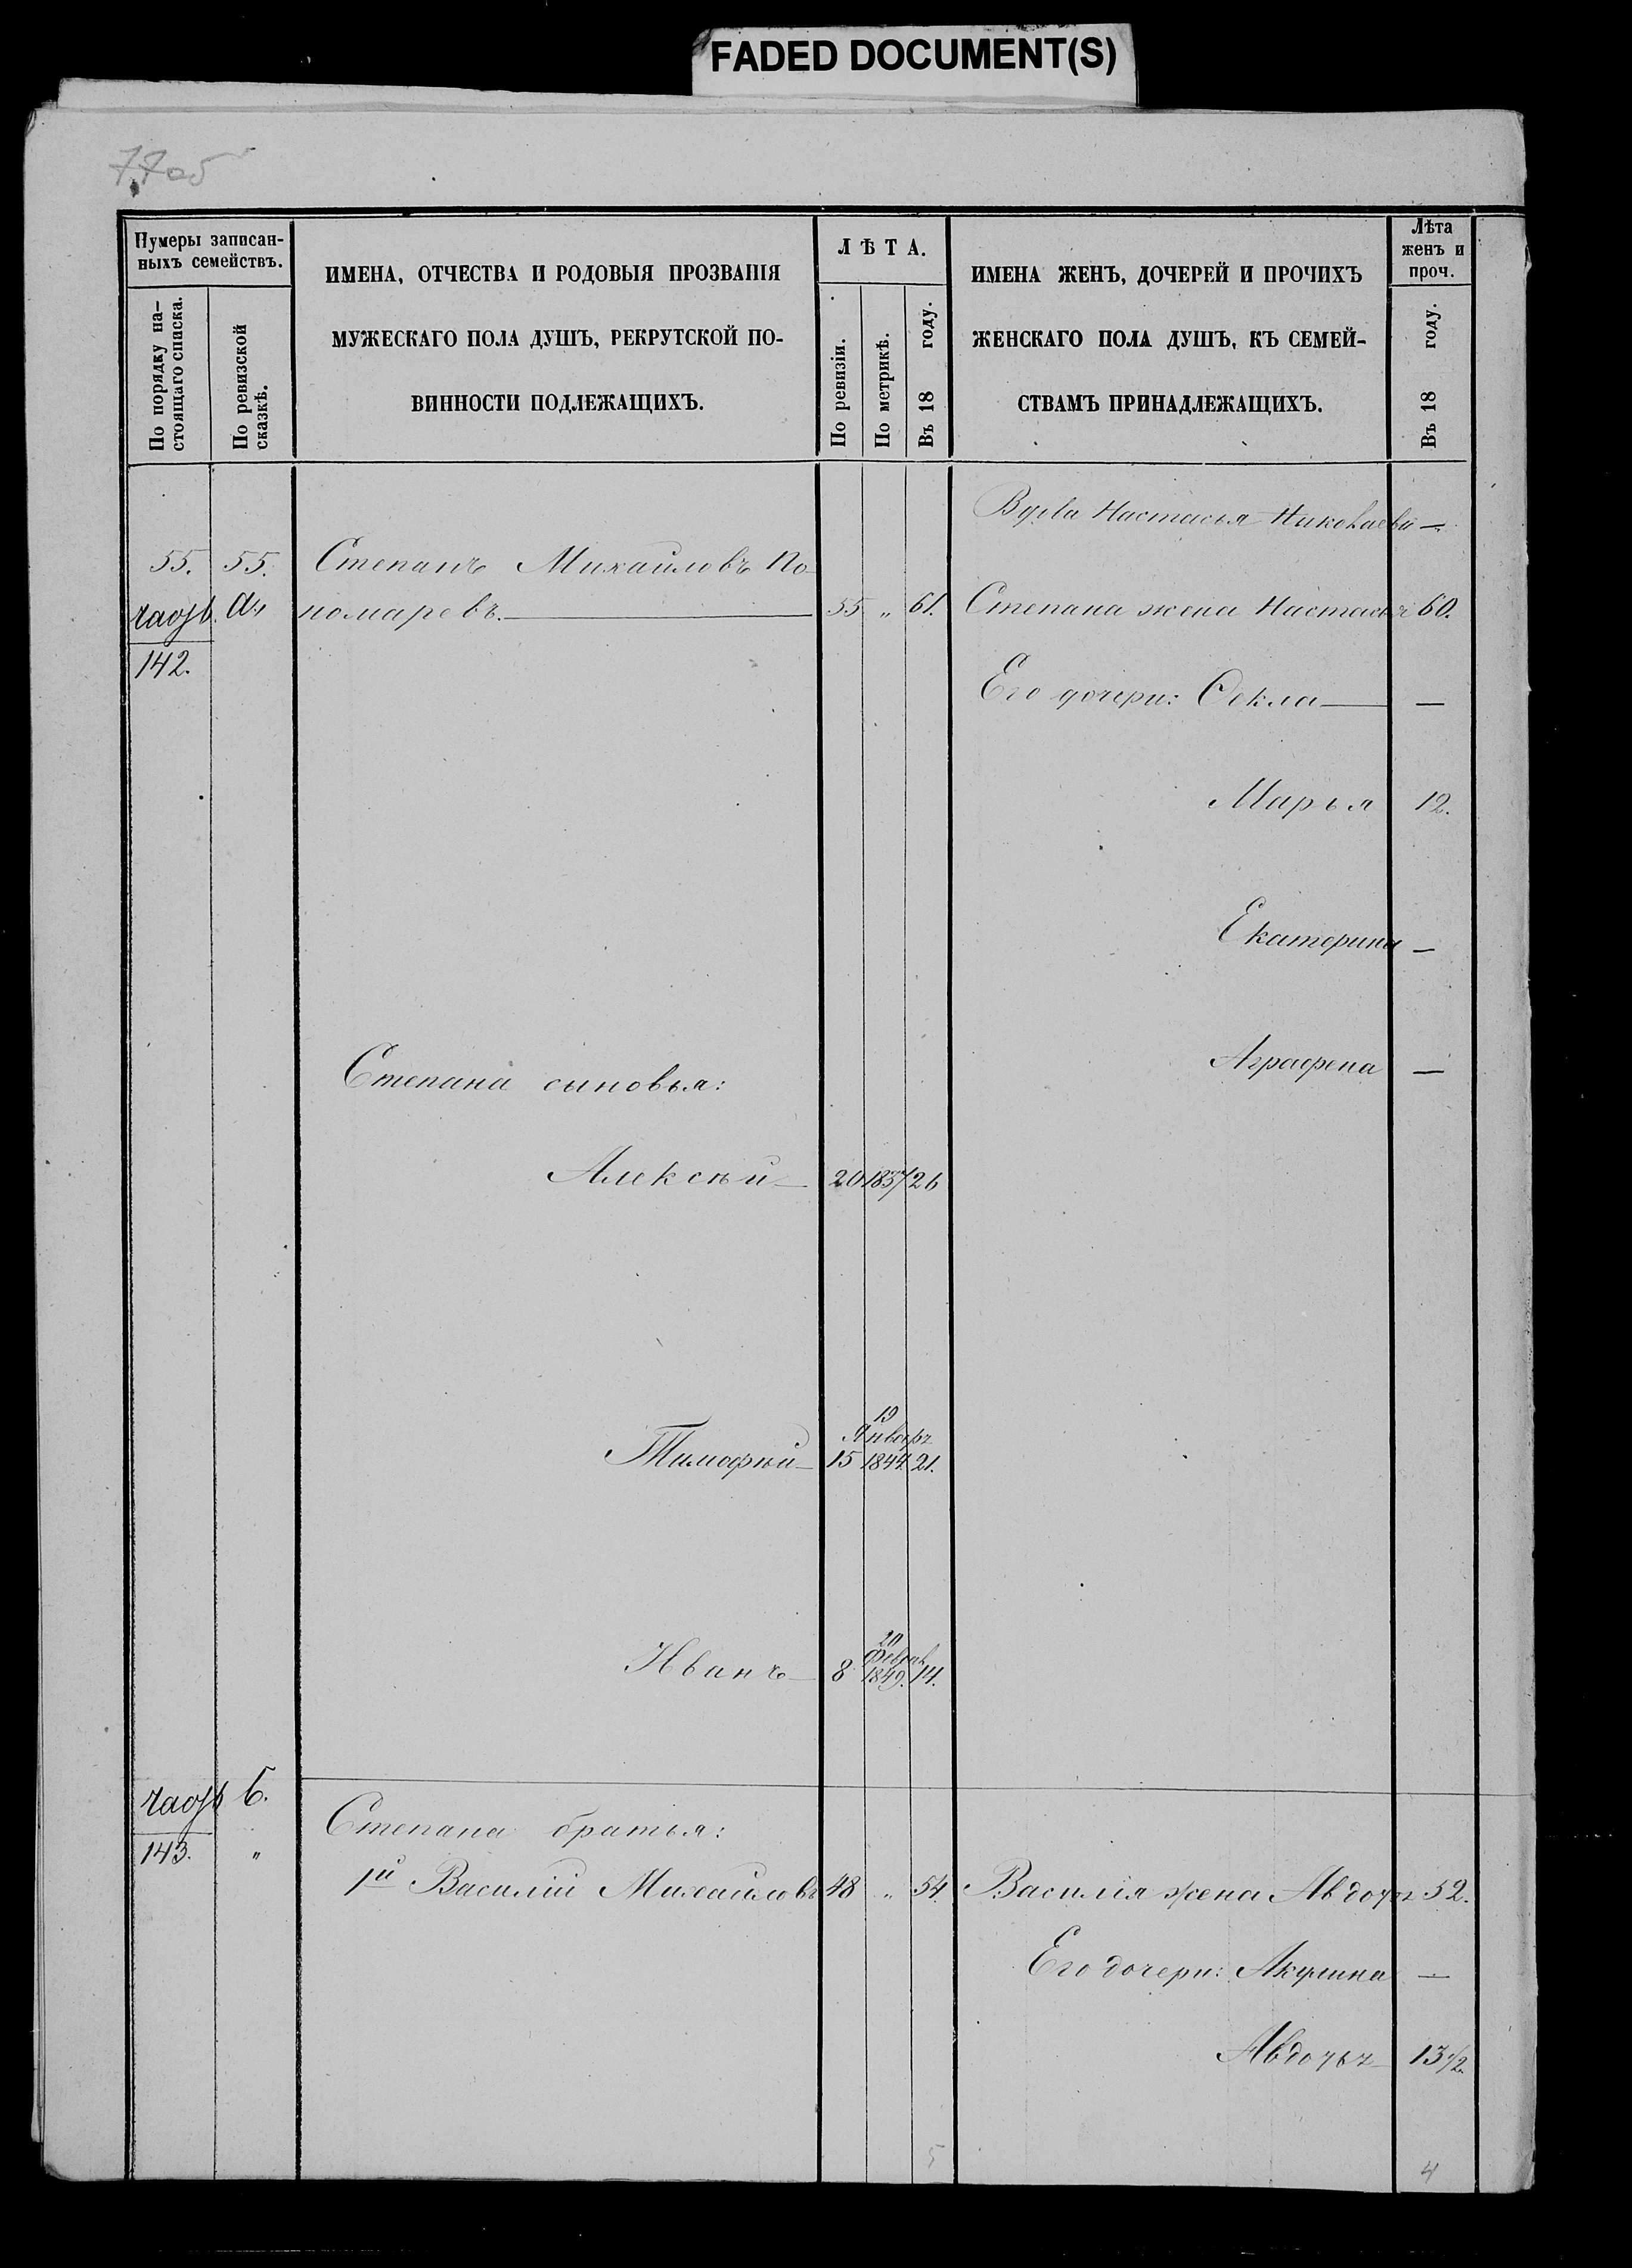 FADED DOCUMENT(S)
77об
Нумеры записан-
ныхъ семействъ.
По порядку на-
стоящаго списка.
По ревизской
сказкѣ.
ИМЕНА, ОТЧЕСТВА И РОДОВЫЯ ПРОЗВАНІЯ
МУЖЕСКАГО ПОЛА ДУШЪ, РЕКРУТСКОЙ ПО-
ВИННОСТИ ПОДЛЕЖАЩИХЪ.
ЛѢТА.
По ревизіи.
По метрикѣ.
Въ 18 году.
ИМЕНА ЖЕНЪ, ДОЧЕРЕЙ И ПРОЧИХЪ
ЖЕНСКАГО ПОЛА ДУШЪ, КЪ СЕМЕЙ-
СТВАМЪ ПРИНАДЛЕЖАЩИХЪ.
Лѣта
женъ и
проч.
Въ 18 году.
Вдова Настасья Николаева —
55. 55. Степанъ Михайловъ По-
а., номаревъ. 55 „ 61. Степана жена Настасья 60.
142.
Его дочери: Ѳекла —
Марья 12.
Екатерина —
Аграфена —
Степана сыновья:
Алексѣй 20 1837 26
19
Январ
Тимофѣй 15 1844 21.
20
Февра
Иванъ 8 1849. 14.
б.
Степана братья:
143. „
1й Василій Михайловъ 48 „ 54. Василія жена Авдотья 52.
Его дочери: Акулина —
Авдотья 13 1/2.
5
4